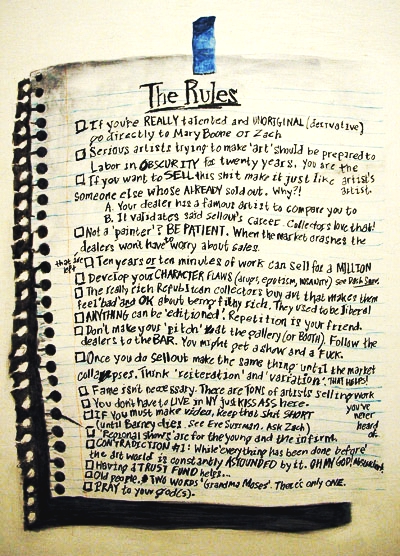 The Rules
If you're REALLY talented and UNORIGINAL (derivative)
go directly to Mary Boone or Zach
Serious artists trying to make 'art' should be prepared to
Labor in OBSCURITY for twenty years. you are the
artist's
artist.
If you want to SELL this shit make it just like
someone else whose ALREADY sold out. Why?!
A. Your dealer has a famous artist to compare you to
B. It validates said sellout's career. Collectors love that!
Not a 'painter'? BE PATIENT. When the market crashes the
dealers won't have to worry about sales.
that are
left
Ten years or ten minutes of work can sell for a MILLION
Develop your CHARACTER FLAWS (drugs, egotism, insanity) see Dash Snow.
The really rich Republican collectors buy art that makes them
feel 'bad' and OK about being filthy rich. They used to be liberal
ANYTHING can be 'editioned'. Repetition is your friend.
Don't make your 'pitch' at the gallery (or BOOTH). Follow the
dealers to the BAR. You might get a show and a fuck.
Once you do sellout make the same thing until the market
collapses. Think 'reiteration' and 'variation'. THAT HELPS!
Fame isn't necessary. There are TONS of artists selling work
you've
never
heard
of.
You don't have to LIVE in NY just KISS ASS here.
IF you must make video, keep that shit SHORT
(until Barney dies. See Eve Sussman. Ask Zach)
'Regional shows' are for the young and the infirm.
CONTRADICTION #1: While 'everything has been done before'
the art world is constantly ASTOUNDED by it. OH MY GOD!
Having a TRUST FUND helps...
Old people. TWO WORDS 'Grandma Moses'. There's only ONE.
PRAY to your god(s).